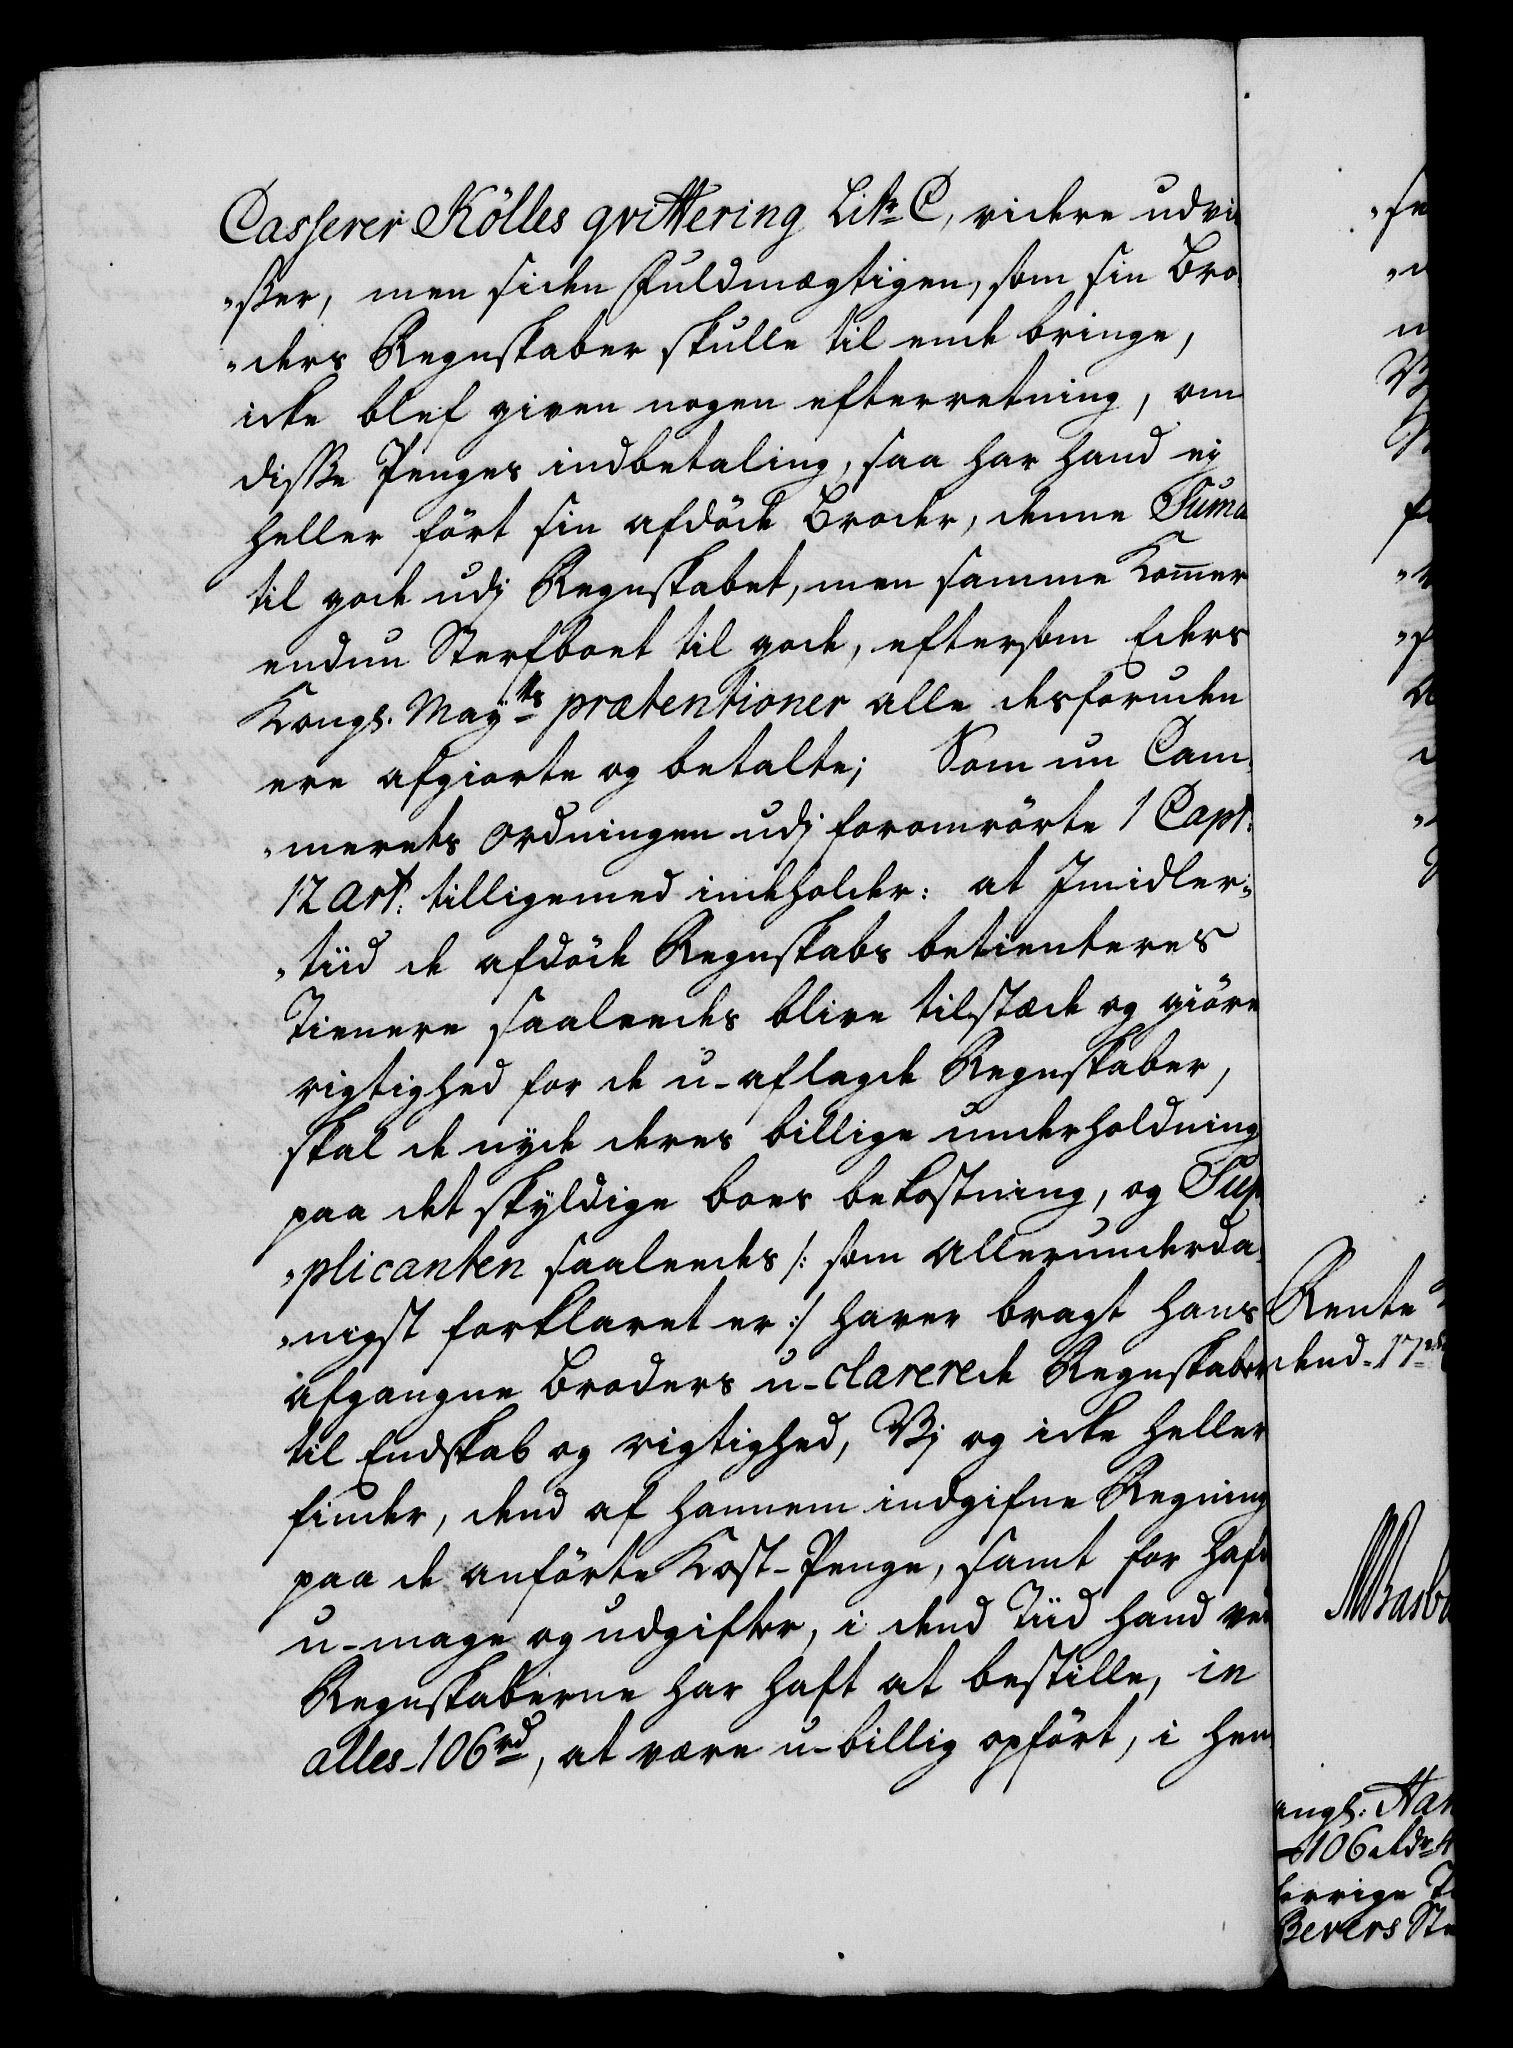 Casserer Kölles qvittering Litr C, videre udvi-
„ser, men siden Fuldmægtigen, som sin Bro-
„ders Regnskaber skulle til ende bringe,
icke blef given nogen efterretning, om
disse Penges indbetaling, saa har hand ej
heller fört sin afdöde Broder, denne Suma
til gode udj Regnskabet, men samme Komer
endnu Sterfboet til gode, eftersom Eders
Kongl. Mayts prætentioner alle desforuden
ere afgiorte og betalte; Som nu Cam-
„merets Ordningen udj foromrörte 1 Capt:
12 Art: tilligemed indeholder: at Jmidler-
„tiid de afdöde Regnskabs betienteres
Tienere saaleedes blive tilstæde og giöre
rigtighed for de u-aflagde Regnskaber,
skal de nyde deres billige underholdning
paa det skyldige boes bekostning, og Sup-
„plicanten saaleedes /: som allerunderda-
„nigst forklaret er :/ haver bragt hans
afgangne Broders u-clarerede Regnskaber
til Endskab og rigtighed, Vj og icke heller
finder, dend af hannem indgifne Regning
paa de anförte Kost-Penge, samt for hafde
u-mage og udgifter, i dend Tiid hand ved
Regnskaberne har haft at bestille, in
alles 106 rd, at være u-billig opfört, i hen
Rente
dend 17
106
Bevers